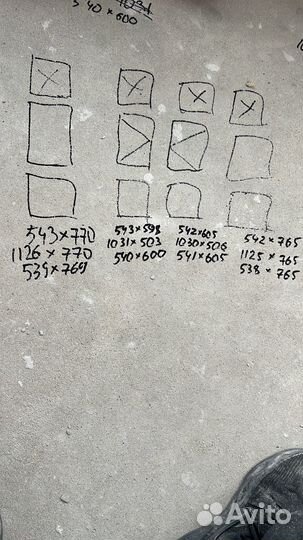 540×600
543×770
1126×770
539×769
543×598
1031×503
540×600
542×605
1030×506
541×605
542×765
1125×765
538×765
Avito